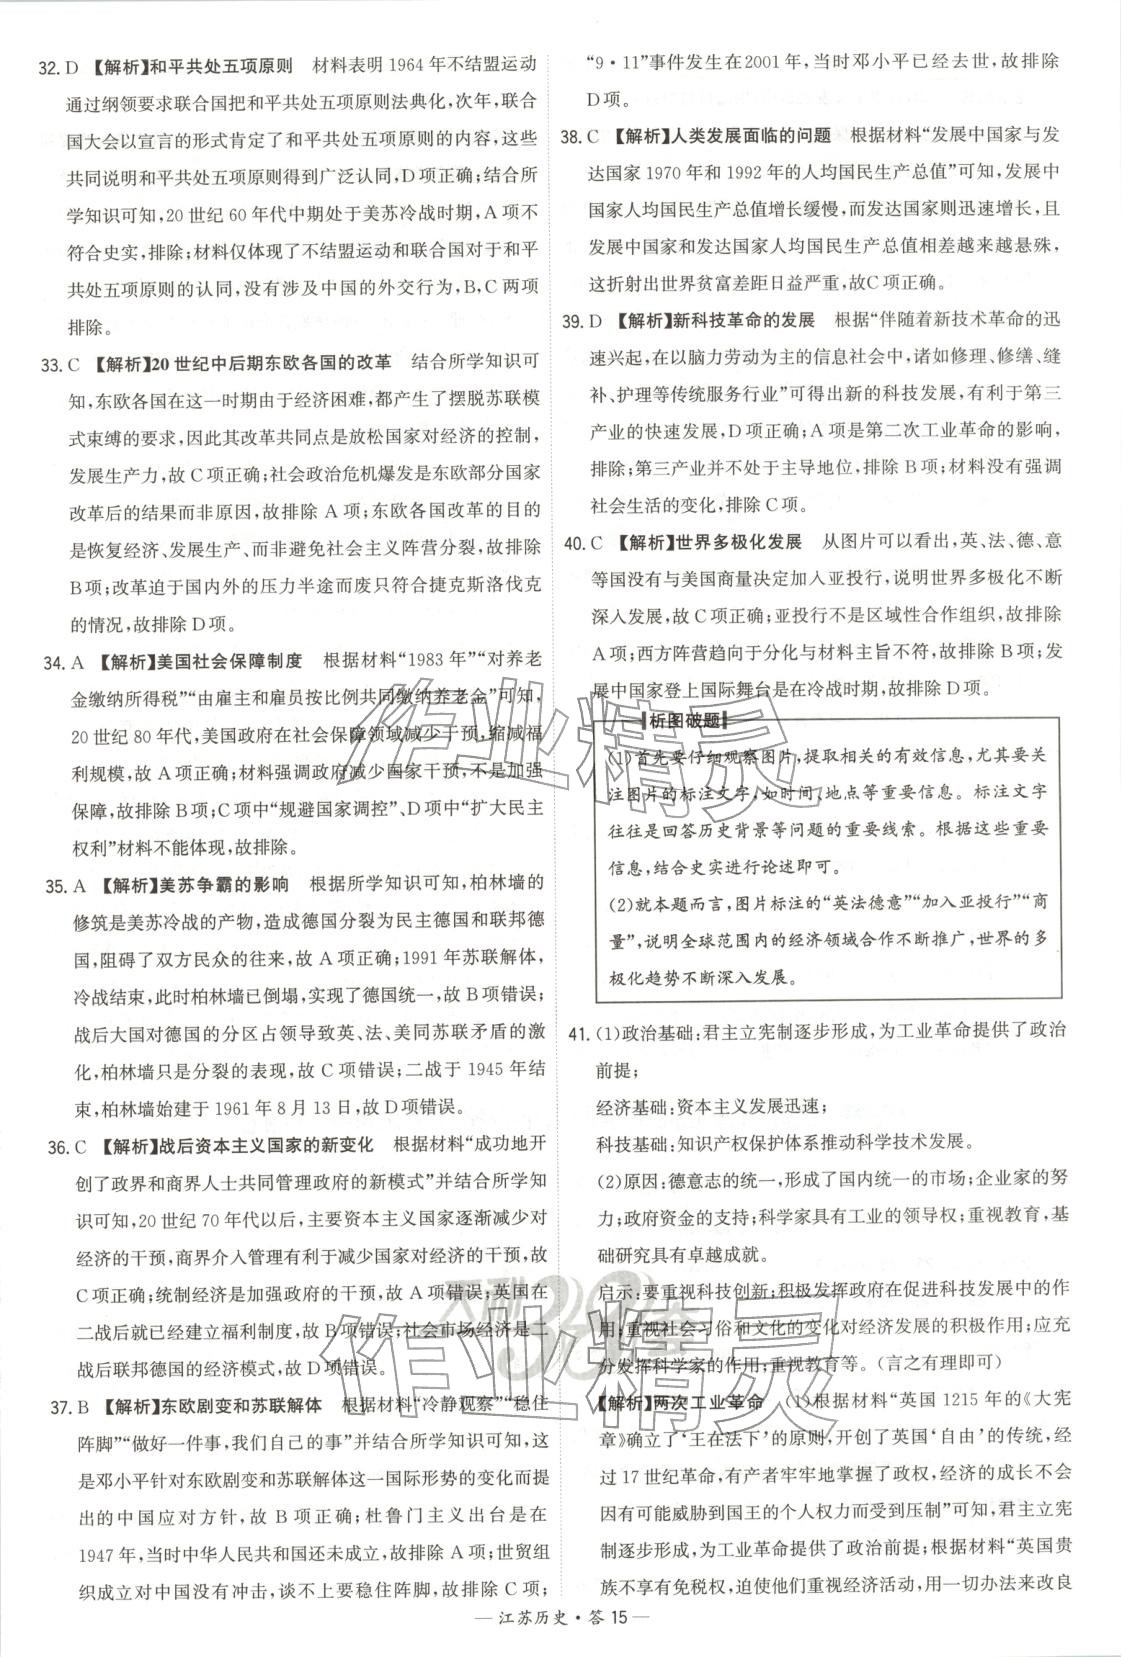 32. D 【解析】和平共处五项原则 材料表明 1964 年不结盟运动
通过纲领要求联合国把和平共处五项原则法典化，次年，联合
国大会以宣言的形式肯定了和平共处五项原则的内容，这些
共同说明和平共处五项原则得到广泛认同，D 项正确；结合所
学知识可知，20 世纪 60 年代中期处于美苏冷战时期，A 项不
符合史实，排除；材料仅体现了不结盟运动和联合国对于和平
共处五项原则的认同，没有涉及中国的外交行为，B、C 两项
排除。
33. C 【解析】20 世纪中后期东欧各国的改革 结合所学知识可
知，东欧各国在这一时期由于经济困难，都产生了摆脱苏联模
式束缚的要求，因此其改革共同点是放松国家对经济的控制，
发展生产力，故 C 项正确；社会政治危机爆发是东欧部分国家
改革后的结果而非原因，故排除 A 项；东欧各国改革的目的
是恢复经济、发展生产、而非避免社会主义阵营分裂，故排除
B 项；改革迫于国内外的压力半途而废只符合捷克斯洛伐克
的情况，故排除 D 项。
34. A 【解析】美国社会保障制度 根据材料“1983 年”“对养老
金缴纳所得税”“由雇主和雇员按比例共同缴纳养老金”可知，
20 世纪 80 年代，美国政府在社会保障领域减少干预，缩减福
利规模，故 A 项正确；材料强调政府减少国家干预，不是加强
保障，故排除 B 项；C 项中“规避国家调控”、D 项中“扩大民主
权利”材料不能体现，故排除。
35. A 【解析】美苏争霸的影响 根据所学知识可知，柏林墙的
修筑是美苏冷战的产物，造成德国分裂为民主德国和联邦德
国，阻碍了双方民众的往来，故 A 项正确；1991 年苏联解体，
冷战结束，此时柏林墙已倒塌，实现了德国统一，故 B 项错误；
战后大国对德国的分区占领导致英、法、美同苏联矛盾的激
化，柏林墙只是分裂的表现，故 C 项错误；二战于 1945 年结
束，柏林墙始建于 1961 年 8 月 13 日，故 D 项错误。
36. C 【解析】战后资本主义国家的新变化 根据材料“成功地开
创了政界和商界人士共同管理政府的新模式”并结合所学知
识可知，20 世纪 70 年代以后，主要资本主义国家逐渐减少对
经济的干预，商界介入管理有利于减少国家对经济的干预，故
C 项正确；统制经济是加强政府的干预，故 A 项错误；英国在
二战后就已经建立福利制度，故 B 项错误；社会市场经济是二
战后联邦德国的经济模式，故 D 项错误。
37. B 【解析】东欧剧变和苏联解体 根据材料“冷静观察”“稳住
阵脚”“做好一件事，我们自己的事”并结合所学知识可知，这
是邓小平针对东欧剧变和苏联解体这一国际形势的变化而提
出的中国应对方针，故 B 项正确；杜鲁门主义出台是在
1947 年，当时中华人民共和国还未成立，故排除 A 项；世贸组
织成立对中国没有冲击，谈不上要稳住阵脚，故排除 C 项；
“9·11”事件发生在 2001 年，当时邓小平已经去世，故排除
D 项。
38. C 【解析】人类发展面临的问题 根据材料“发展中国家与发
达国家 1970 年和 1992 年的人均国民生产总值”可知，发展中
国家人均国民生产总值增长缓慢，而发达国家则迅速增长，且
发展中国家和发达国家人均国民生产总值相差越来越悬殊，
这折射出世界贫富差距日益严重，故 C 项正确。
39. D 【解析】新科技革命的发展 根据“伴随着新技术革命的迅
速兴起，在以脑力劳动为主的信息社会中，诸如修理、修缮、缝
补、护理等传统服务行业”可得出新的科技发展，有利于第三
产业的快速发展，D 项正确；A 项是第二次工业革命的影响，
排除；第三产业并不处于主导地位，排除 B 项；材料没有强调
社会生活的变化，排除 C 项。
40. C 【解析】世界多极化发展 从图片可以看出，英、法、德、意
等国没有与美国商量决定加入亚投行，说明世界多极化不断
深入发展，故 C 项正确；亚投行不是区域性合作组织，故排除
A 项；西方阵营趋向于分化与材料主旨不符，故排除 B 项；发
展中国家登上国际舞台是在冷战时期，故排除 D 项。
析图破题
(1)首先要仔细观察图片，提取相关的有效信息，尤其要关
注图片的标注文字，如时间、地点等重要信息。标注文字
往往是回答历史背景等问题的重要线索。根据这些重要
信息，结合史实进行论述即可。
(2)就本题而言，图片标注的“英法德意”“加入亚投行”“商
量”，说明全球范围内的经济领域合作不断推广，世界的多
极化趋势不断深入发展。
41. (1)政治基础：君主立宪制逐步形成，为工业革命提供了政治
前提；
经济基础：资本主义发展迅速；
科技基础：知识产权保护体系推动科学技术发展。
(2)原因：德意志的统一，形成了国内统一的市场；企业家的努
力；政府资金的支持；科学家具有工业的领导权；重视教育，基
础研究具有卓越成就。
启示：要重视科技创新；积极发挥政府在促进科技发展中的作
用；重视社会习俗和文化的变化对经济发展的影响；应充
分发挥科学家的作用；重视教育等。（言之有理即可）
【解析】两次工业革命 (1)根据材料“英国 1215 年的《大宪
章》确立了‘王在法下’的原则，开创了英国‘自由’的传统，经
过 17 世纪革命，有产者牢牢地掌握了政权，经济的成长不会
因有可能威胁到国王的个人权力而受到压制”可知，君主立宪
制逐步形成，为工业革命提供了政治前提；根据材料“英国贵
族不享有免税权，迫使他们重视经济活动，用一切办法来改良
— 江苏历史·答 15 —
作业精灵
天利38套
作业精灵